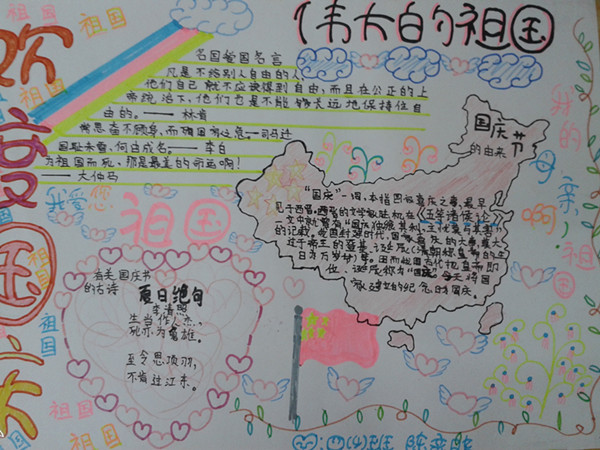 伟大的祖国
欢度国庆
祖国
祖国
祖国
名国爱国名言
凡是不给别人自由的人,
他们自己就不应该得到自由,而且在公正的上
帝统治下,他们也是不能够长远地保持住自
由的。—— 林肯
常思奋不顾身,而殉国家之急—司马迁
国耻未雪,何由成名。—— 李白
为祖国而死,那是最美的命运啊!
—— 大仲马
我爱您
祖国
我的母亲,啊!祖国
国庆节
的由来
"国庆"一词,本指
喜庆之事,最早
见于西晋。西晋的文学家陆机在《五等诸侯论》
一文中就曾有"国庆独飨其利,主忧莫与其害"
的记载、我国封建时代、国家喜庆的大事,莫大
过于帝王的登基、诞辰
日为万岁节)等。因而我国古代把皇帝即
位、诞辰称为"国庆"。今天称国
家建立的纪念日为国庆。
有关国庆节
的古诗
夏日绝句
李清照
生当作人杰,
死亦为鬼雄。
至今思项羽,
不肯过江东。
祖国
祖国
祖国
祖国
四(4)班